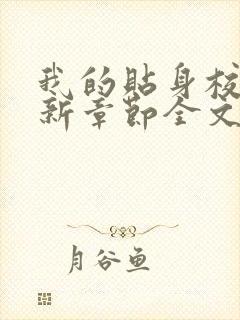 我的贴身校
新章节全文
月谷鱼